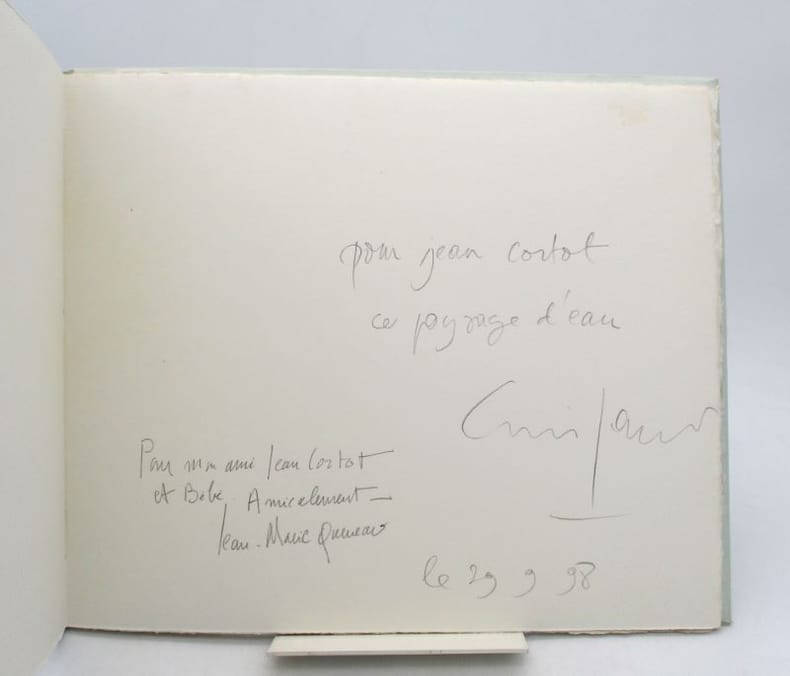 pour jean cortot
ce paysage d'eau
le 29 9 98
Pour mon ami Jean Cortot
et Bébé. Amicalement —
Jean-Marie Queneau